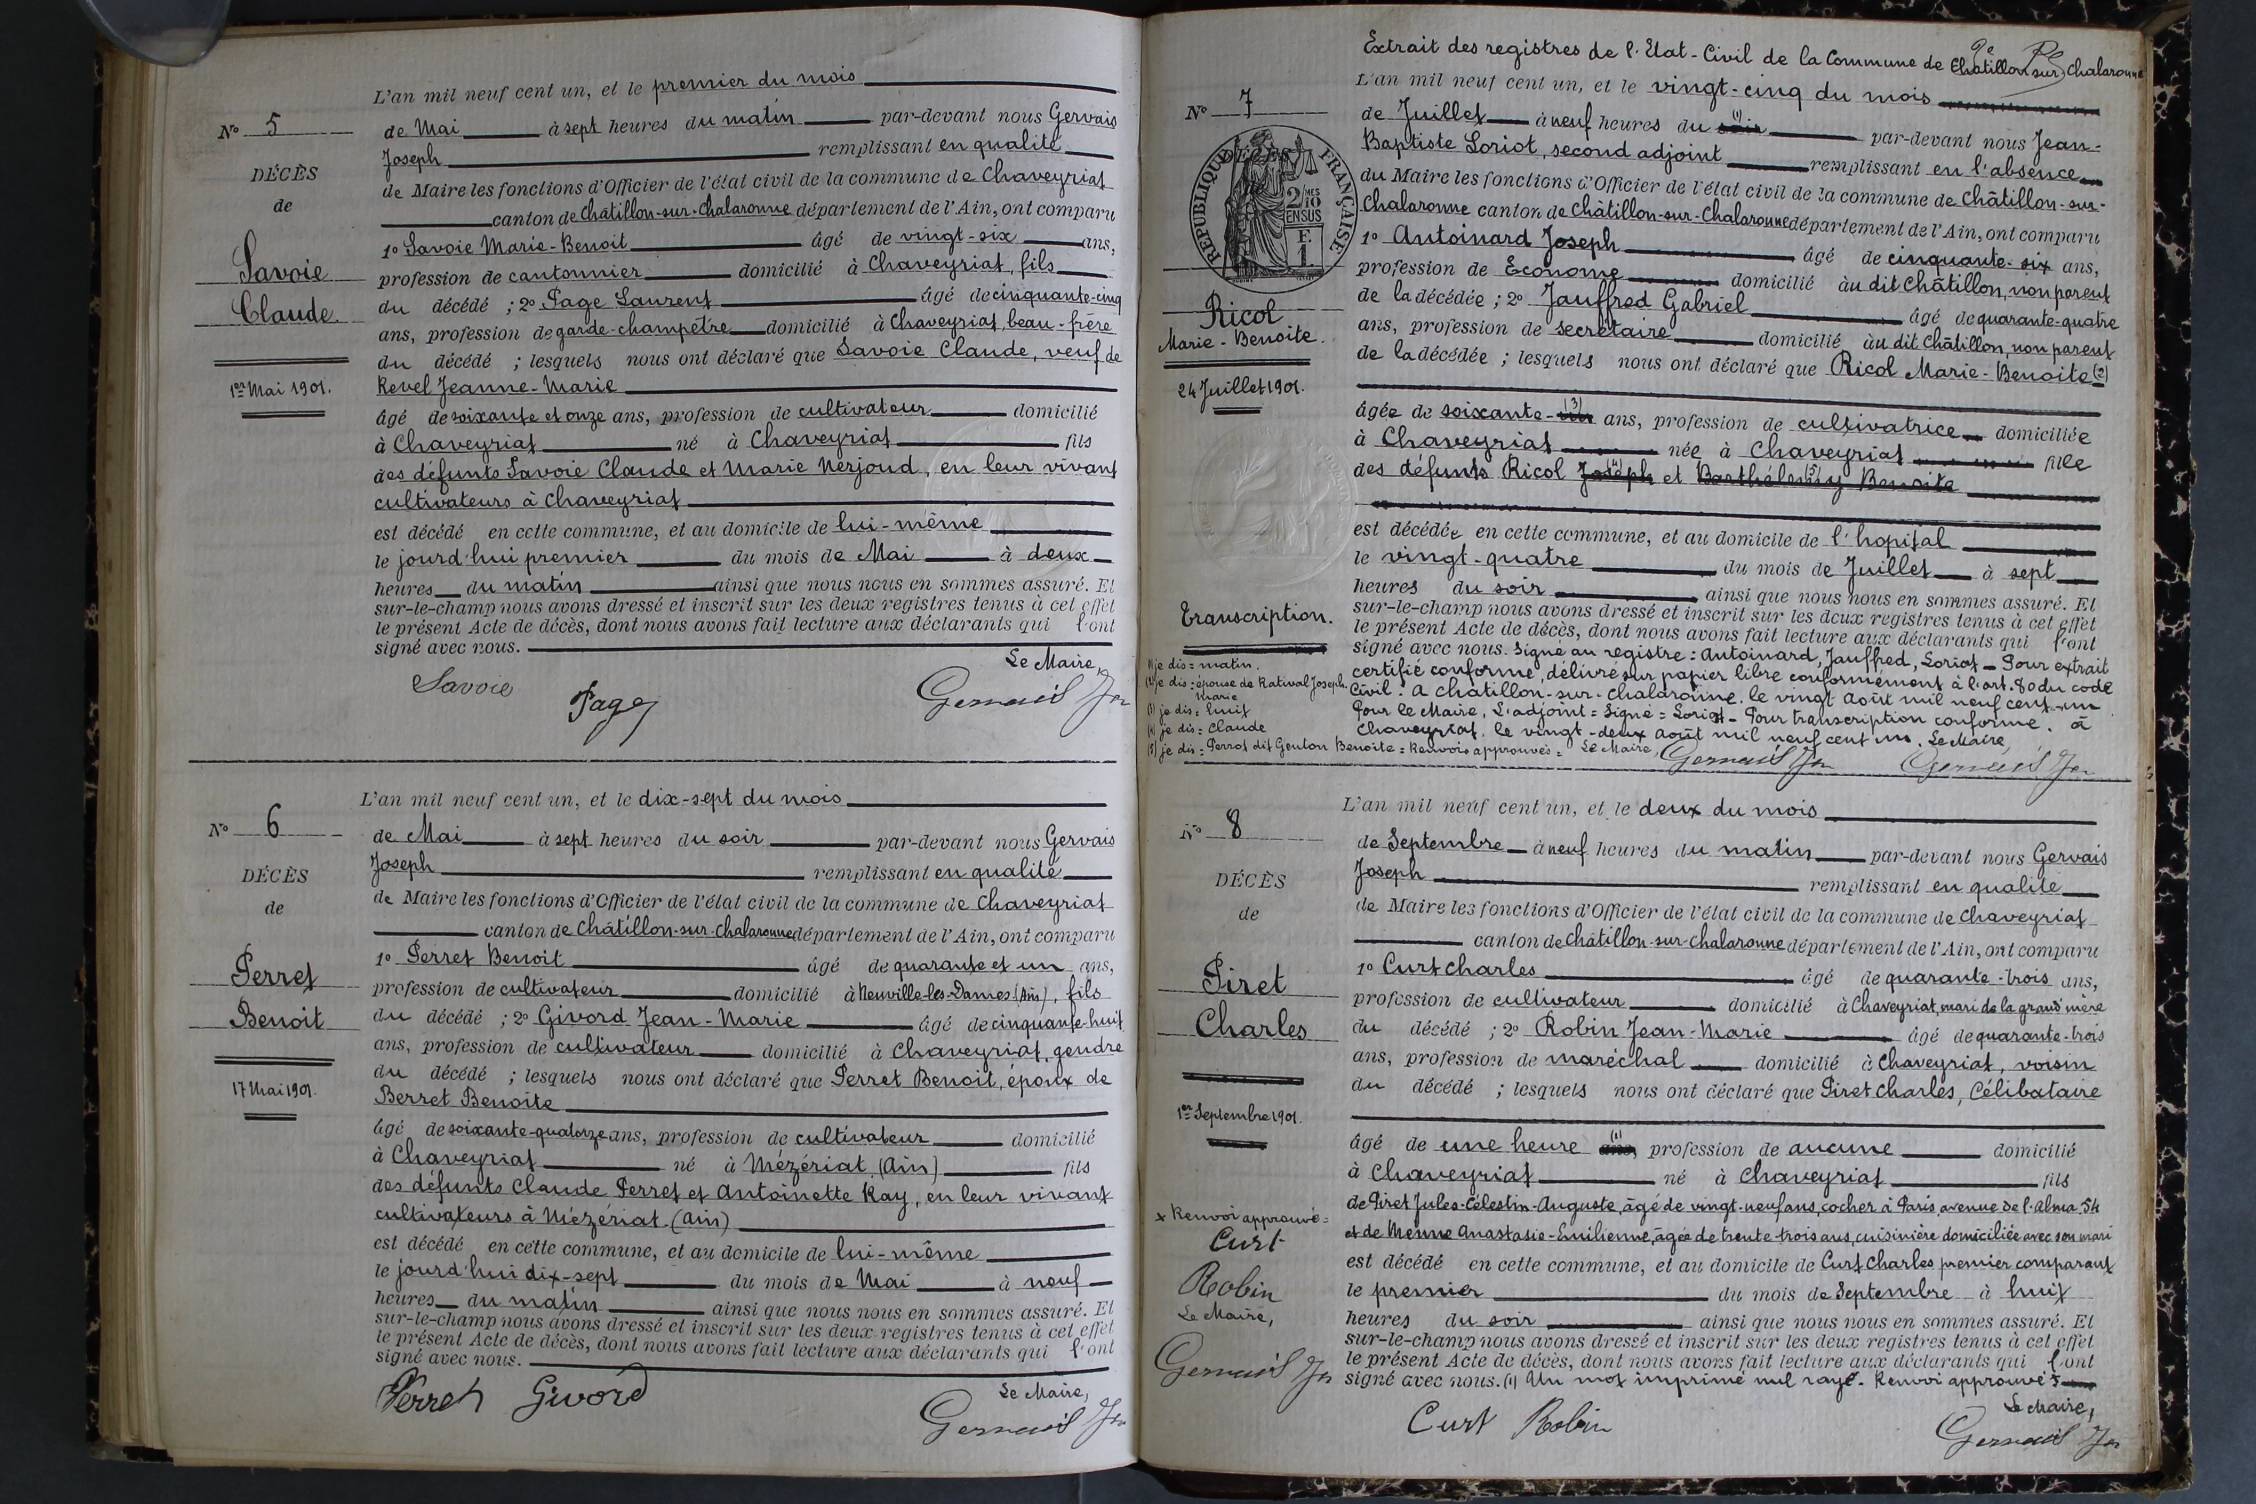 N° 5
DÉCÈS
de
Savoie
Claude
1er Mai 1901.
L'an mil neuf cent un, et le premier du mois
de Mai à sept heures du matin par-devant nous Gervais
Joseph remplissant en qualité
de Maire les fonctions d'Officier de l'état civil de la commune de Chaveyriat
canton de Châtillon-sur-Chalaronne département de l'Ain, ont comparu
1° Savoie Marie-Benoit âgé de vingt-six ans,
profession de cantonnier domicilié à Chaveyriat, fils
du décédé ; 2° Page Laurent âgé de cinquante-cinq
ans, profession de garde-champêtre domicilié à Chaveyriat, beau-frère
du décédé ; lesquels nous ont déclaré que Savoie Claude, veuf de
Revel Jeanne-Marie
âgé de soixante et onze ans, profession de cultivateur domicilié
à Chaveyriat né à Chaveyriat fils
des défunts Savoie Claude et Marie Nerjoud, en leur vivant
cultivateurs à Chaveyriat
est décédé en cette commune, et au domicile de lui-même
le jourd'hui premier du mois de Mai à deux
heures du matin ainsi que nous nous en sommes assuré. Et
sur-le-champ nous avons dressé et inscrit sur les deux registres tenus à cet effet
le présent Acte de décès, dont nous avons fait lecture aux déclarants qui l'ont
signé avec nous.
Le Maire,
Savoie Page Gervais Jh
N° 6
DÉCÈS
de
Perret
Benoit
17 Mai 1901.
L'an mil neuf cent un, et le dix-sept du mois
de Mai à sept heures du soir par-devant nous Gervais
Joseph remplissant en qualité
de Maire les fonctions d'Officier de l'état civil de la commune de Chaveyriat
canton de Châtillon-sur-Chalaronne département de l'Ain, ont comparu
1° Perret Benoit âgé de quarante et un ans,
profession de cultivateur domicilié à Neuville-les-Dames (Ain), fils
du décédé ; 2° Givord Jean-Marie âgé de cinquante-huit
ans, profession de cultivateur domicilié à Chaveyriat, gendre
du décédé ; lesquels nous ont déclaré que Perret Benoit, époux de
Berret Benoite
âgé de soixante-quatorze ans, profession de cultivateur domicilié
à Chaveyriat né à Mézériat (Ain) fils
des défunts Claude Perret et Antoinette Ray, en leur vivant
cultivateurs à Mézériat (Ain)
est décédé en cette commune, et au domicile de lui-même
le jourd'hui dix-sept du mois de Mai à neuf
heures du matin ainsi que nous nous en sommes assuré. Et
sur-le-champ nous avons dressé et inscrit sur les deux registres tenus à cet effet
le présent Acte de décès, dont nous avons fait lecture aux déclarants qui l'ont
signé avec nous.
Le Maire,
Perret Givord Gervais Jh
Extrait des registres de l'Etat-Civil de la Commune de Châtillon sur Chalaronne
N° 7
DÉCÈS
de
RÉPUBLIQUE FRANÇAISE
2/10 MES
EN SUS
F.
1
Ricol
Marie-Benoite.
24 Juillet 1901.
Transcription.
L'an mil neuf cent un, et le vingt-cinq du mois
de Juillet à neuf heures du soir (1) par-devant nous Jean-
Baptiste Loriot, second adjoint remplissant en l'absence
du Maire les fonctions d'Officier de l'état civil de la commune de Châtillon-sur-
Chalaronne canton de Châtillon-sur-Chalaronne département de l'Ain, ont comparu
1° Antoinard Joseph âgé de cinquante-six ans,
profession de Econome domicilié au dit Châtillon, non parent
de la décédée ; 2° Jauffred Gabriel âgé de quarante-quatre
ans, profession de secrétaire domicilié au dit Châtillon, non parent
de la décédée ; lesquels nous ont déclaré que Ricol Marie-Benoite (2)
âgée de soixante- (3) ans, profession de cultivatrice domiciliée
à Chaveyriat née à Chaveyriat fille
des défunts Ricol Joseph (4) et Barthélemy Benoite (5)
est décédée en cette commune, et au domicile de l'hopital
le vingt-quatre du mois de Juillet à sept
heures du soir ainsi que nous nous en sommes assuré. Et
sur-le-champ nous avons dressé et inscrit sur les deux registres tenus à cet effet
le présent Acte de décès, dont nous avons fait lecture aux déclarants qui l'ont
signé avec nous. Signé au registre : Antoinard, Jauffred, Loriot – Pour extrait
certifié conforme, délivré sur papier libre conformément à l'art. 80 du code
civil. A Châtillon-sur-Chalaronne, le vingt Août mil neuf cent un
Pour le Maire, L'adjoint = Signé = Loriot – Pour transcription conforme. à
Chaveyriat, le vingt-deux Août mil neuf cent un. Le Maire,
(1) je dis = matin.
(2) je dis : épouse de Rativat Joseph
Marie
(3) je dis = huit
(4) je dis = Claude
(5) je dis = Perrot dit Genton Benoite = Renvois approuvés = Le Maire,
Gervais Jh Gervais Jh
N° 8
DÉCÈS
de
Piret
Charles
1er Septembre 1901.
x Renvoi approuvé =
Curt
Robin
Le Maire,
Gervais Jh
L'an mil neuf cent un, et le deux du mois
de Septembre à neuf heures du matin par-devant nous Gervais
Joseph remplissant en qualité
de Maire les fonctions d'Officier de l'état civil de la commune de Chaveyriat
canton de Châtillon-sur-Chalaronne département de l'Ain, ont comparu
1° Curt Charles âgé de quarante-trois ans,
profession de cultivateur domicilié à Chaveyriat, mari de la grand'mère
du décédé ; 2° Robin Jean-Marie âgé de quarante-trois
ans, profession de maréchal domicilié à Chaveyriat, voisin
du décédé ; lesquels nous ont déclaré que Piret Charles, Célibataire
âgé de une heure ans, (1) profession de aucune domicilié
à Chaveyriat né à Chaveyriat fils
de Piret Jules-Célestin-Auguste, âgé de vingt-neuf ans, cocher à Paris, avenue de l'Alma 54
et de Menne Anastasie-Emilienne, âgée de trente-trois ans, cuisinière domiciliée avec son mari
est décédé en cette commune, et au domicile de Curt Charles premier comparant
le premier du mois de Septembre à huit
heures du soir ainsi que nous nous en sommes assuré. Et
sur-le-champ nous avons dressé et inscrit sur les deux registres tenus à cet effet
le présent Acte de décès, dont nous avons fait lecture aux déclarants qui l'ont
signé avec nous. (1) Un mot imprimé nul rayé. Renvoi approuvé
Le Maire,
Curt Robin Gervais Jh